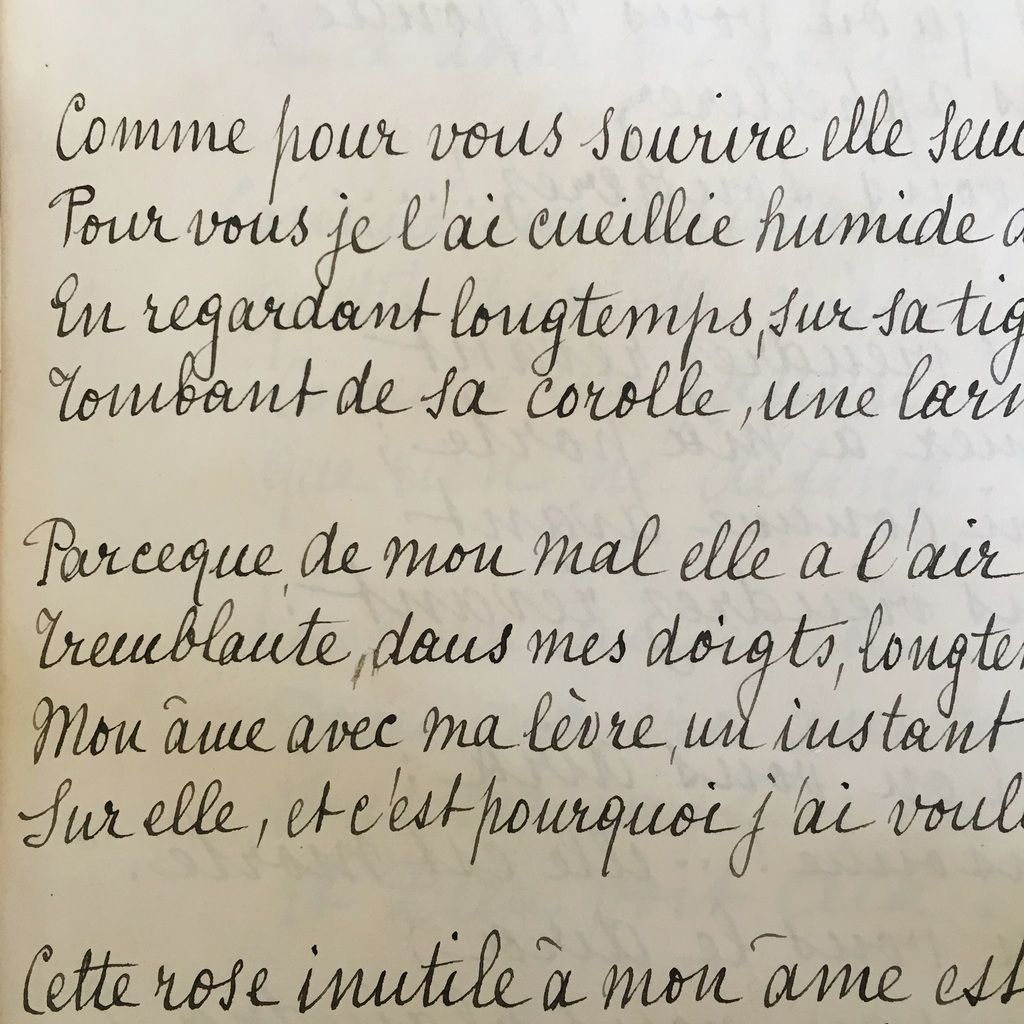 Comme pour vous sourire elle
Pour vous je l'ai cueillie humide
En regardant longtemps, sur sa
Tombant de sa corolle, une
Parceque, de mon mal elle a l'air
Tremblante, dans mes doigts,
Mon âme avec ma lèvre, un instant
Sur elle, et c'est pourquoi j'ai
Cette rose inutile à mon âme est